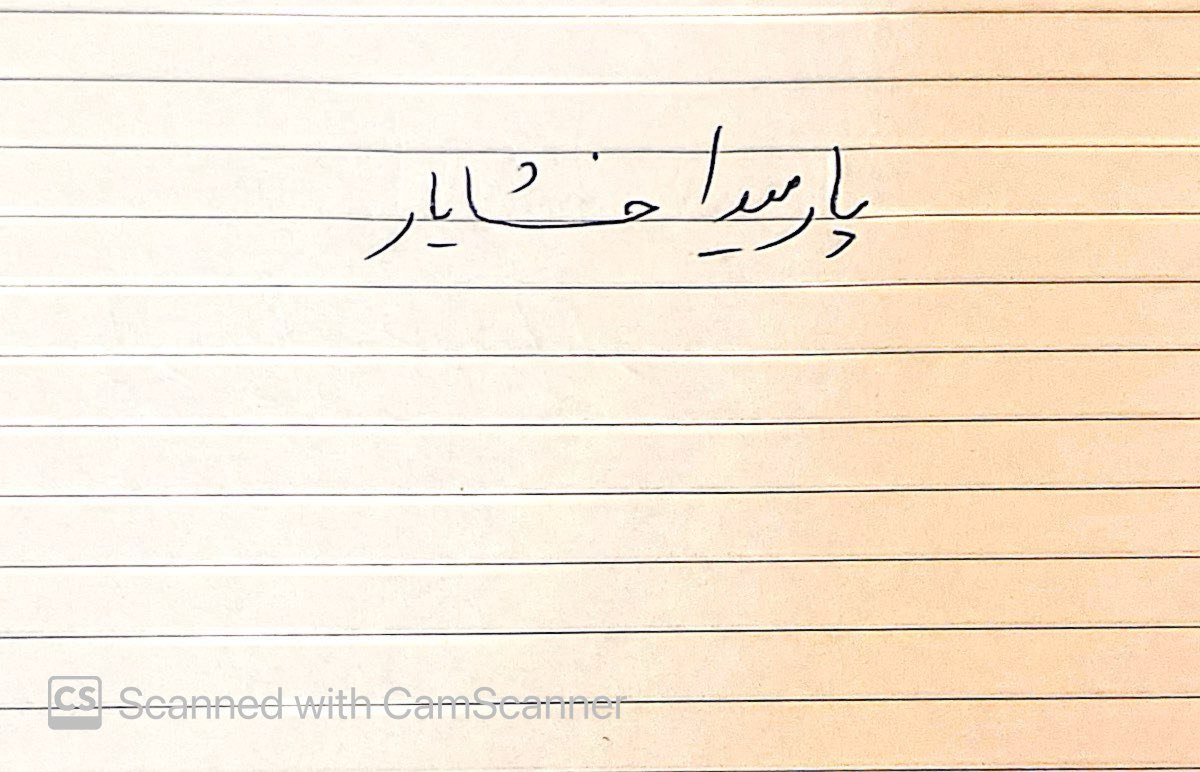 پارمیدا خشایار
CS Scanned with CamScanner